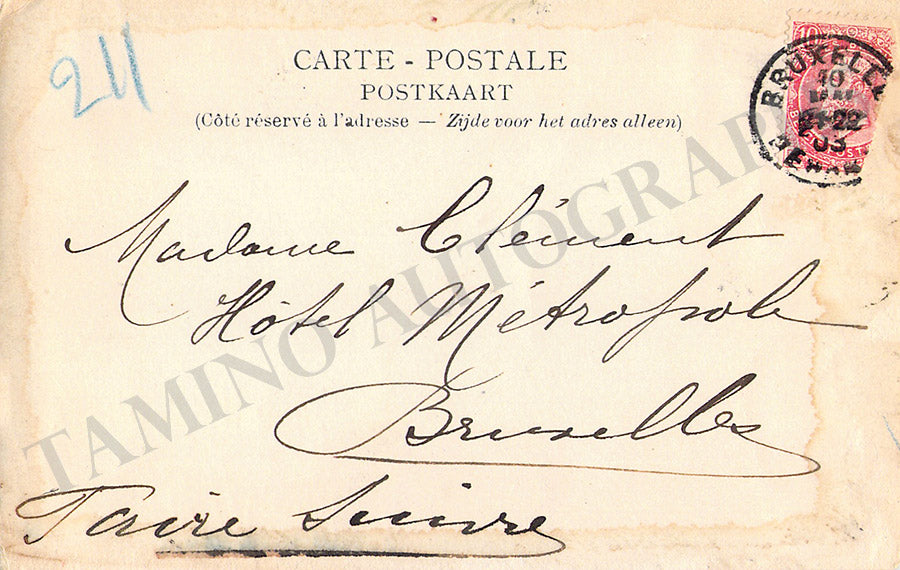 211
CARTE - POSTALE
POSTKAART
(Côté réservé à l'adresse — Zijde voor het adres alleen)
10
BRUXELLE
10
21-22
03
Madame Clément
Hôtel Métropole
Bruxelles
Faire Suivre
TAMINO AUTOGRAPH